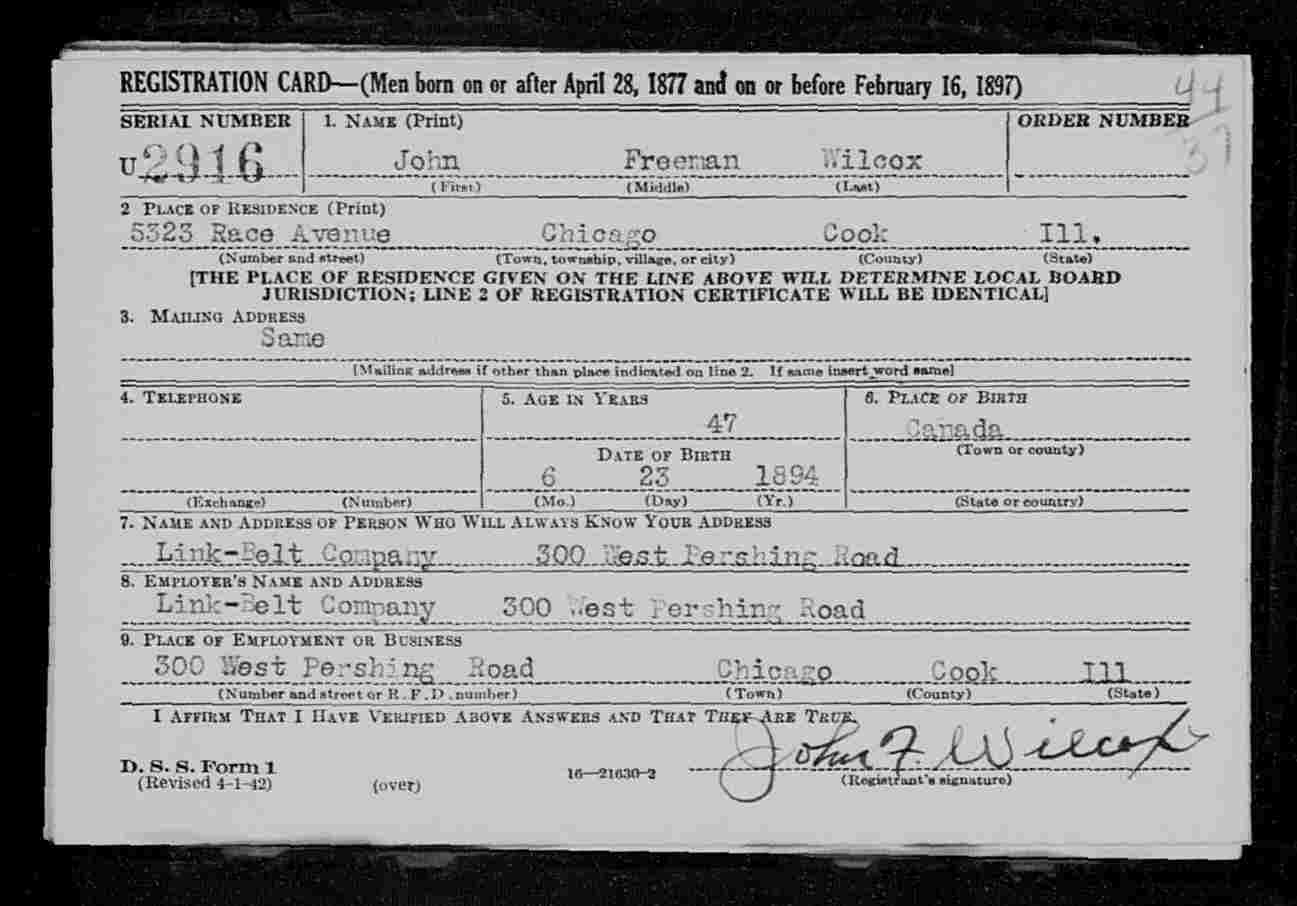 REGISTRATION CARD—(Men born on or after April 28, 1877 and on or before February 16, 1897)
44
37
SERIAL NUMBER 1. NAME (Print) ORDER NUMBER
U 2916 John Freeman Wilcox
(First) (Middle) (Last)
2 PLACE OF RESIDENCE (Print)
5323 Race Avenue Chicago Cook Ill.
(Number and street) (Town, township, village, or city) (County) (State)
[THE PLACE OF RESIDENCE GIVEN ON THE LINE ABOVE WILL DETERMINE LOCAL BOARD
JURISDICTION; LINE 2 OF REGISTRATION CERTIFICATE WILL BE IDENTICAL]
3. MAILING ADDRESS
Same
[Mailing address if other than place indicated on line 2. If same insert word same]
4. TELEPHONE 5. AGE IN YEARS 6. PLACE OF BIRTH
47 Canada
DATE OF BIRTH (Town or county)
6 23 1894
(Exchange) (Number) (Mo.) (Day) (Yr.) (State or country)
7. NAME AND ADDRESS OF PERSON WHO WILL ALWAYS KNOW YOUR ADDRESS
Link-Belt Company 300 West Pershing Road
8. EMPLOYER'S NAME AND ADDRESS
Link-Belt Company 300 West Pershing Road
9. PLACE OF EMPLOYMENT OR BUSINESS
300 West Pershing Road Chicago Cook Ill
(Number and street or R. F. D. number) (Town) (County) (State)
I AFFIRM THAT I HAVE VERIFIED ABOVE ANSWERS AND THAT THEY ARE TRUE.
John F. Wilcox
D. S. S. Form 1
(Revised 4-1-42) (over) 16—21630-2 (Registrant's signature)